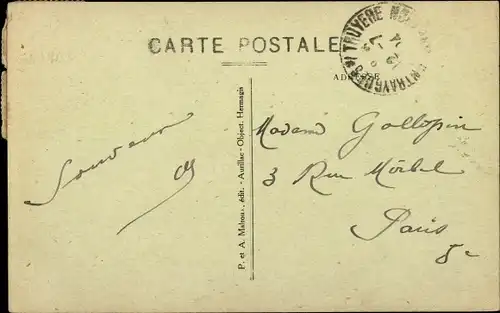 CARTE POSTALE
ADRESSE
TRUYERE
Souvenir
P. et A. Malroux, édit. - Aurillac - Object. Hermagis
Madame Gallopin
3 Rue Miribel
Paris
5e